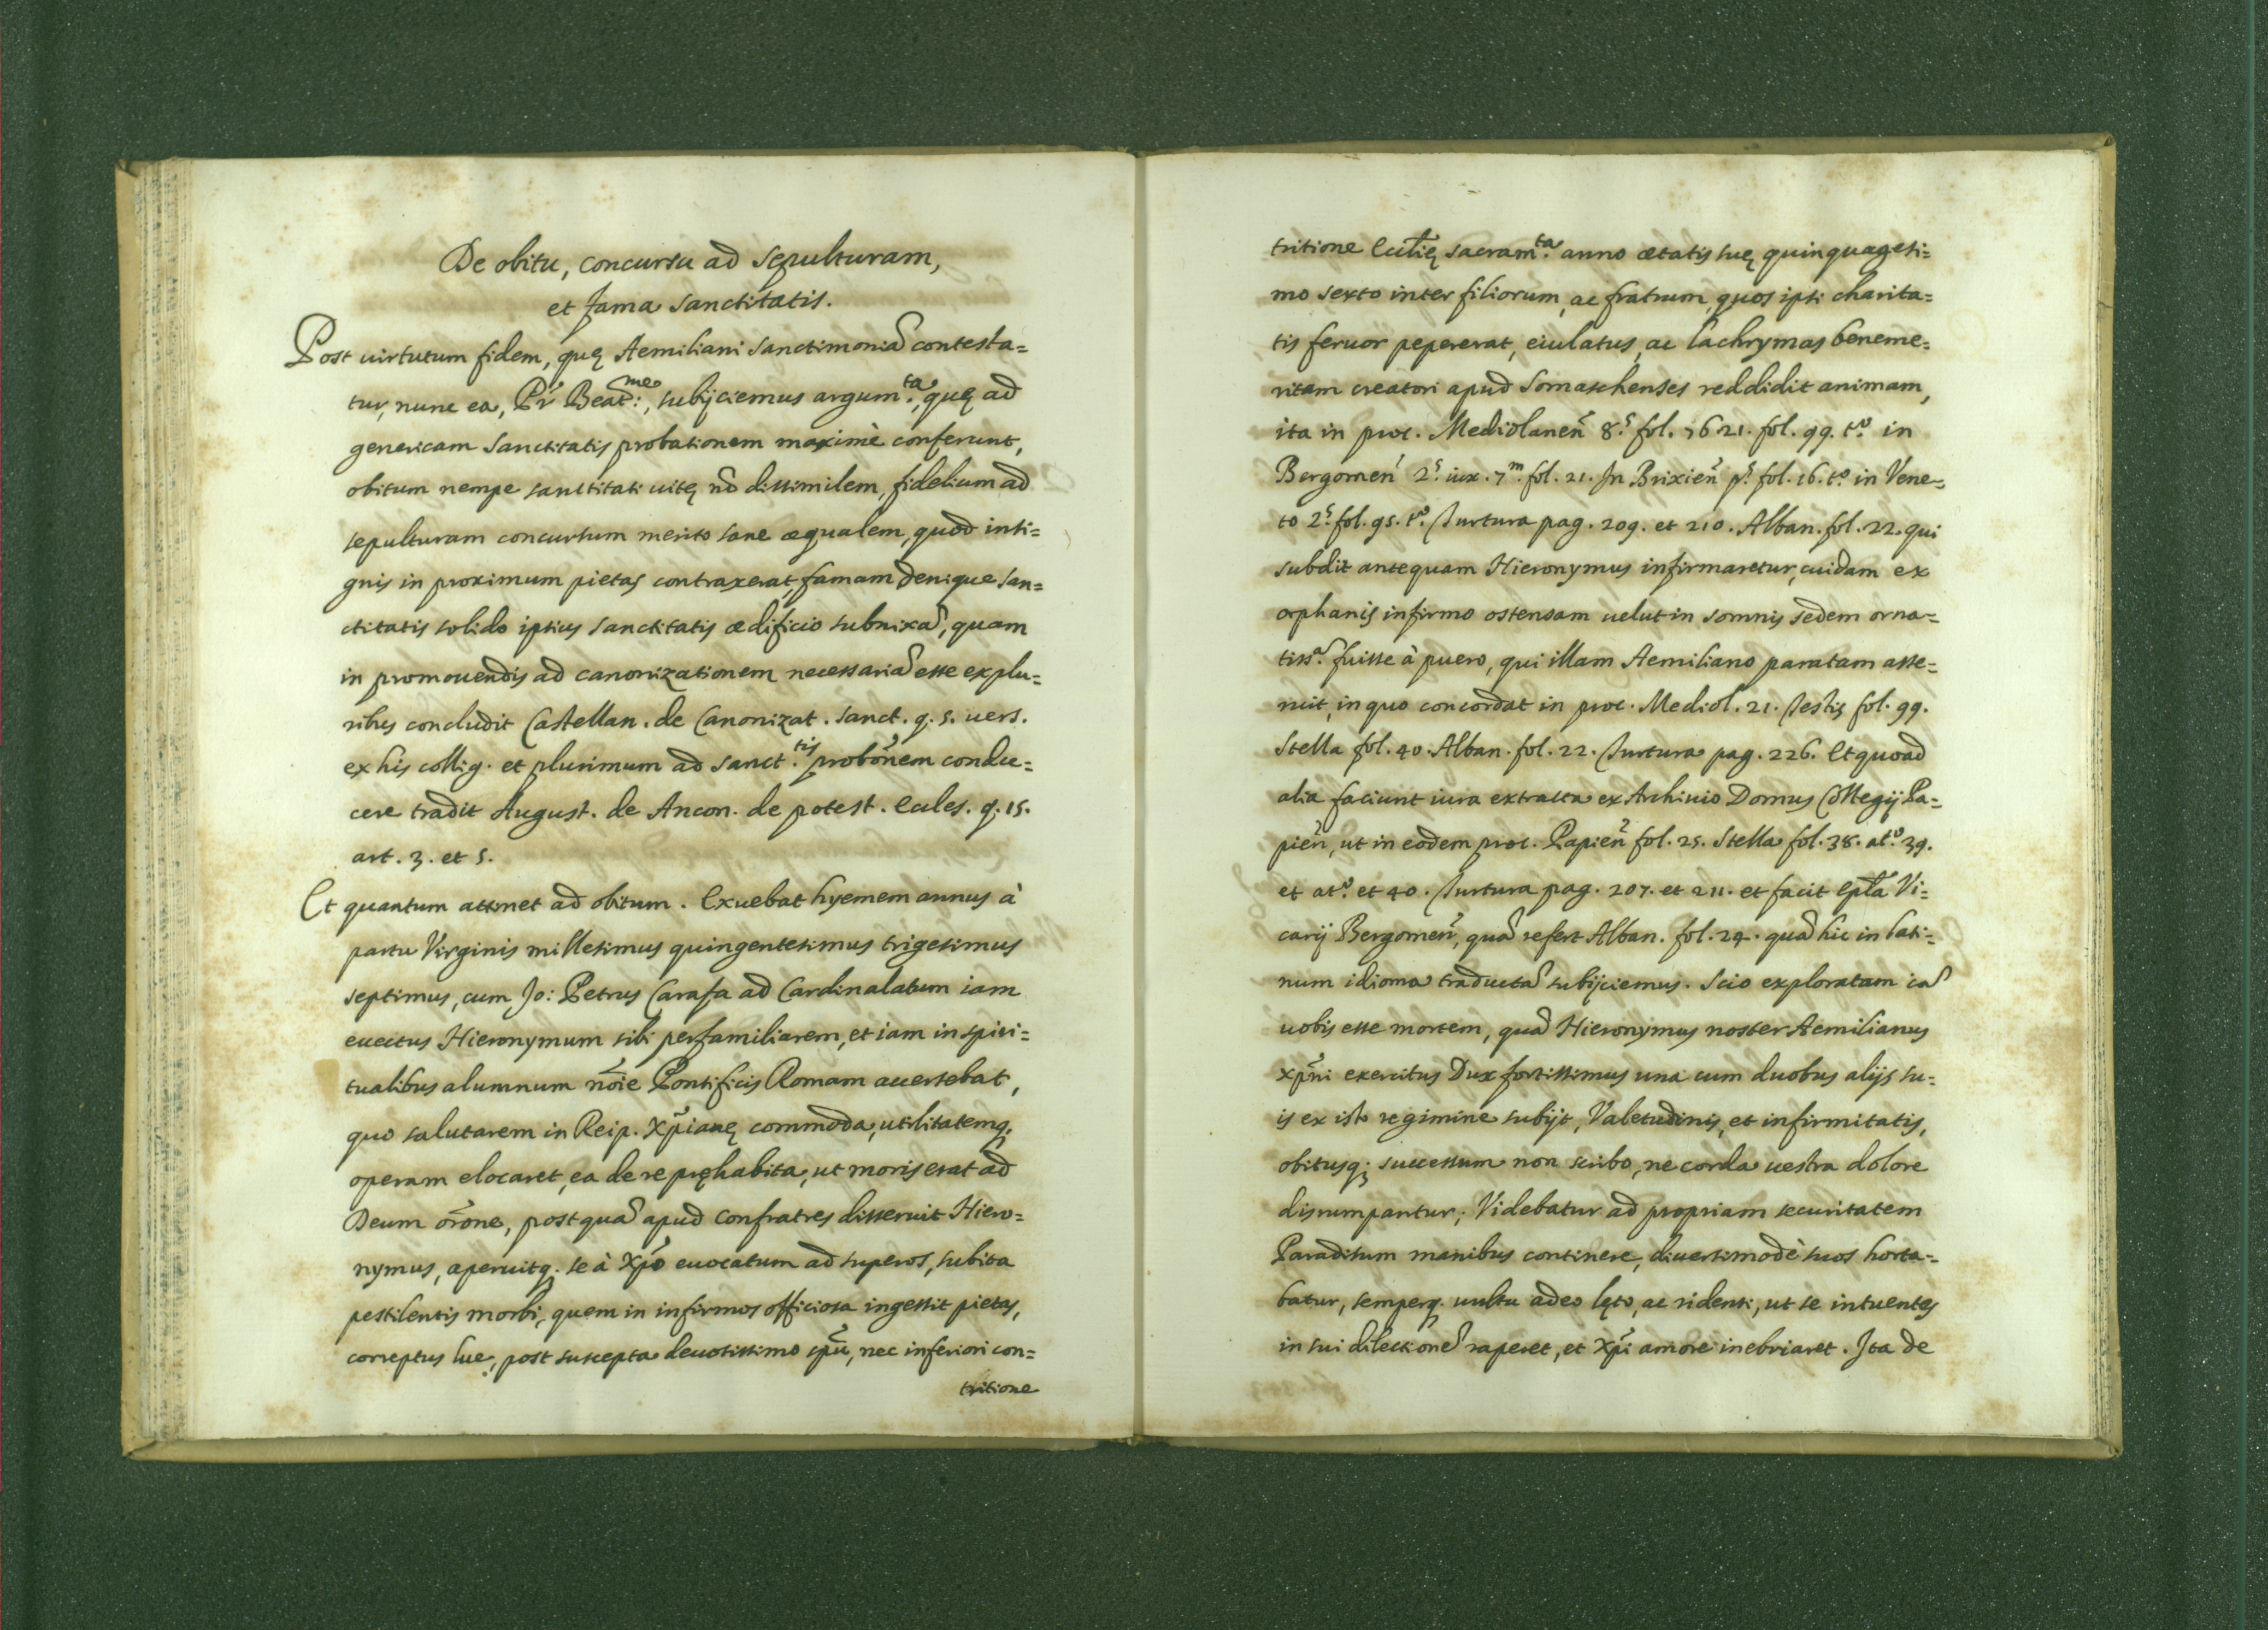 De obitu, concursu ad sepulturam,
et fama sanctitatis.
Post uirtutum fidem, quę Aemiliani sanctimoniã contesta=
tur, nunc ea, Pr̃ Beat:me, subijciemus argum.ta, quę ad
genericam sanctitatis probationem maximè conferunt,
obitum nempe sanctitati uitę nõ dissimilem, fidelium ad
sepulturam concursum merito sane æqualem, quod insi=
gnis in proximum pietas contraxerat, famam denique san=
ctitatis solido ipsius sanctitatis ædificio subnixã, quam
in promouendis ad canonizationem necessariã esse ex plu=
ribus concludit Castellan. de Canonizat. Sanct. q. 5. uers.
ex his collig. et plurimum ad sanct.tis probõnem condu=
cere tradit August. de Ancon. de potest. Eccles. q. 15.
art. 3. et 5.
Et quantum attinet ad obitum. Exuebat hyemem annus à
partu Virginis millesimus quingentesimus trigesimus
septimus, cum Jo: Petrus Carafa ad Cardinalatum iam
euectus Hieronymum sibi perfamiliarem, et iam in spiri=
tualibus alumnum nõie Pontificis Romam accersebat,
quo salutarem in Reip. Xp̃ianę commoda, utilitatemq.
operam elocaret, ea de re pręhabita, ut moris erat ad
Deum orõne, postquã apud confratres disseruit Hiero=
nymus, aperuitq. se à Xpõ euocatum ad superos, subita
pestilentis morbi, quem in infirmos officiosa ingessit pietas,
correptus lue, post suscepta deuotissimo spũ, nec inferiori con=
tritione
tritione Ecclię sacram.ta anno ætatis suę quinquagesi=
mo sexto inter filiorum, ac fratrum, quos ipsi charita=
tis feruor pepererat, eiulatus, ac lachrymas beneme=
ritam creatori apud Somaschenses reddidit animam,
ita in proc. Mediolanen̄ 8.s fol. 76 21. fol. 99. t.o in
Bergomen̄ 2.s iux. 7.m fol. 21. In Brixien̄ p.s fol. 16. t.o in Vene=
to 2.s fol. 95. t.o Turtura pag. 209. et 210. Alban. fol. 22. qui
subdit antequam Hieronymus infirmaretur, cuidam ex
orphanis infirmo ostensam uelut in somnis sedem orna=
tiss.ã fuisse à puero, qui illam Aemiliano paratam asse=
ruit, in quo concordat in proc. Mediol. 21. Testis fol. 99.
Stella fol. 40. Alban. fol. 22. Turtura pag. 226. Et quoad
alia faciunt iura extracta ex Archiuio Domus Collegij Pa=
pien̄, ut in eodem proc. Papien̄ fol. 25. Stella fol. 38. at.o 39.
et at.o et 40. Turtura pag. 207. et 211. et facit Ep̃la Vi=
carij Bergomen̄, quã refert Alban. fol. 24. quã hic in lati=
num idioma traductã subijciemus. Scio exploratam iã
uobis esse mortem, quã Hieronymus noster Aemilianus
Xp̃ni exercitus Dux fortissimus una cum duobus alijs su=
is ex isto regimine subijt, Valetudinis, et infirmitatis,
obitusq; successum non scribo, ne corda uestra dolore
disrumpantur; Videbatur ad propriam securitatem
Paradisum manibus continere, diuersimodè suos horta=
batur, semperq. uultu adeo lęto, ac ridenti, ut se intuentes
in sui dilectionẽ raperet, et Xp̃i amore inebriaret. Ita de